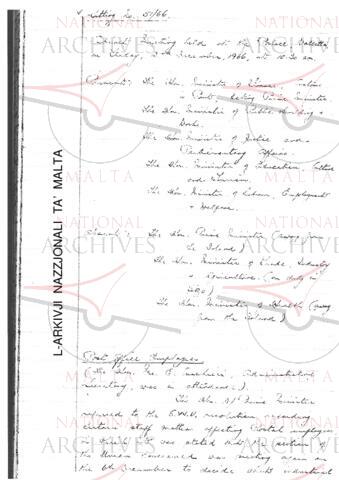 Sitting No. 51/66.
Cabinet Meeting held at the Palace, Valletta,
on Friday, December, 1966, at 10.30 am.
Present: The Hon. Minister of Finance, Customs
& Port, Acting Prime Minister.
The Hon. Minister of Public Building &
Works.
The Hon. Minister of Justice and
Parliamentary Affairs.
The Hon. Minister of Education, Culture
and Tourism.
The Hon. Minister of Labour, Employment
& Welfare.
Absent: The Hon. Prime Minister (away from
the Island)
The Hon. Minister of Trade, Industry
& Agriculture. (on duty in
The Hon. Minister of Health (away
from the island)
Post Office Employees.
(The Hon. Administrative
Secretary, was in attendance.)
The Hon. A/Prime Minister
referred to the G.W.U. resolution regarding
certain staff matters affecting Postal employees
in which it was stated that the section of
the Union concerned was meeting again on
the 6th December to decide about industrial
L-ARKIVJI NAZZJONALI TA' MALTA
NATIONAL
ARCHIVES